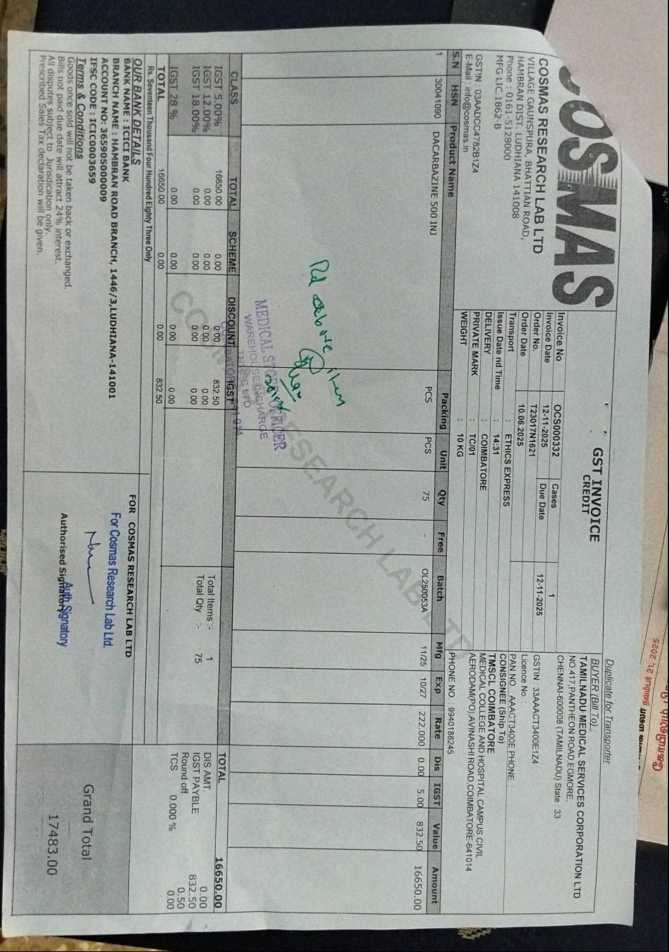 COSMAS
COSMAS RESEARCH LAB LTD
VILLAGE GAUNSPURA, BHATTIAN ROAD,
HAMBRAN DIST. LUDHIANA 141008
Phone : 0161-5128000
MFG LIC.1862-B
GSTIN : 03AADCC4782B1Z4
E-Mail : info@cosmas.in
GST INVOICE
CREDIT
Duplicate for Transporter
Invoice No : OCS000332 Cases 1
Invoice Date : 12-11-2025 Due Date 12-11-2025
Order No. : T23017N1621
Order Date : 10.06.2025
Transport : ETHICS EXPRESS
Issue Date nd Time : 14:31
DELIVERY : COIMBATORE
PRIVATE MARK : TC/01
WEIGHT : 10 KG
BUYER (Bill To)
TAMILNADU MEDICAL SERVICES CORPORATION LTD
NO.417,PANTHEON ROAD,EGMORE,
CHENNAI-600008 (TAMILNADU) State : 33
GSTIN 33AAACT3400E1Z4
Licence No
PAN NO AAACT3400E PHONE
CONSIGNEE (Ship To)
TMSCL COIMBATORE
MEDICAL COLLEGE AND HOSPITAL CAMPUS,CIVIL
AERODAM(PO),AVINASHI ROAD,COIMBATORE-641014
PHONE NO 9940188245
S.N HSN Product Name Packing Unit Qty Free Batch Mfg Exp Rate Dis IGST Value Amount
1 30041090 DACARBAZINE 500 INJ PCS PCS 75 - OL250053A 11/25 10/27 222.000 0.00 5.00 832.50 16650.00
Rd above item
MEDICAL STORE OFFICER
WAREHOUSE INCHARGE
COSMAS RESEARCH LAB LTD
CLASS TOTAL SCHEME DISCOUNT IGST
IGST 5.00% 16650.00 0.00 0.00 832.50
IGST 12.00% 0.00 0.00 0.00 0.00
IGST 18.00% 0.00 0.00 0.00 0.00
IGST 28 % 0.00 0.00 0.00 0.00
TOTAL 16650.00 0.00 0.00 832.50
Total Items :- 1
Total Qty :- 75
TOTAL 16650.00
DIS AMT 0.00
IGST PAYBLE 832.50
Round off 0.50
TCS 0.000 % 0.00
Rs. Seventeen Thousand Four Hundred Eighty Three Only
OUR BANK DETAILS
BANK NAME : ICICI BANK
BRANCH NAME : HAMBRAN ROAD BRANCH, 1446/3,LUDHIANA-141001
ACCOUNT NO: 365905000009
IFSC CODE : ICIC0003659
Terms & Conditions
Goods once sold will not be taken back or exchanged.
Bills not paid due date will attract 24% interest.
All disputes subject to Jurisdication only.
Prescribed Sales Tax declaration will be given.
FOR COSMAS RESEARCH LAB LTD
For Cosmas Research Lab Ltd.
Auth Signatory
Authorised Signatory
Grand Total
17483.00